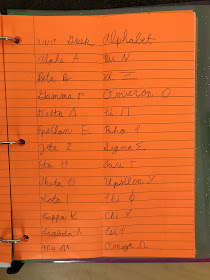 Greek Alphabet
Alpha A Nu N
Beta B Xi Ξ
Gamma Γ Omicron O
Delta Δ Pi Π
Epsilon E Rho P
Zeta Z Sigma Σ
Eta H Tau T
Theta Θ Upsilon Y
Iota I Phi Φ
Kappa K Chi X
Lambda Λ Psi Ψ
Mu M Omega Ω